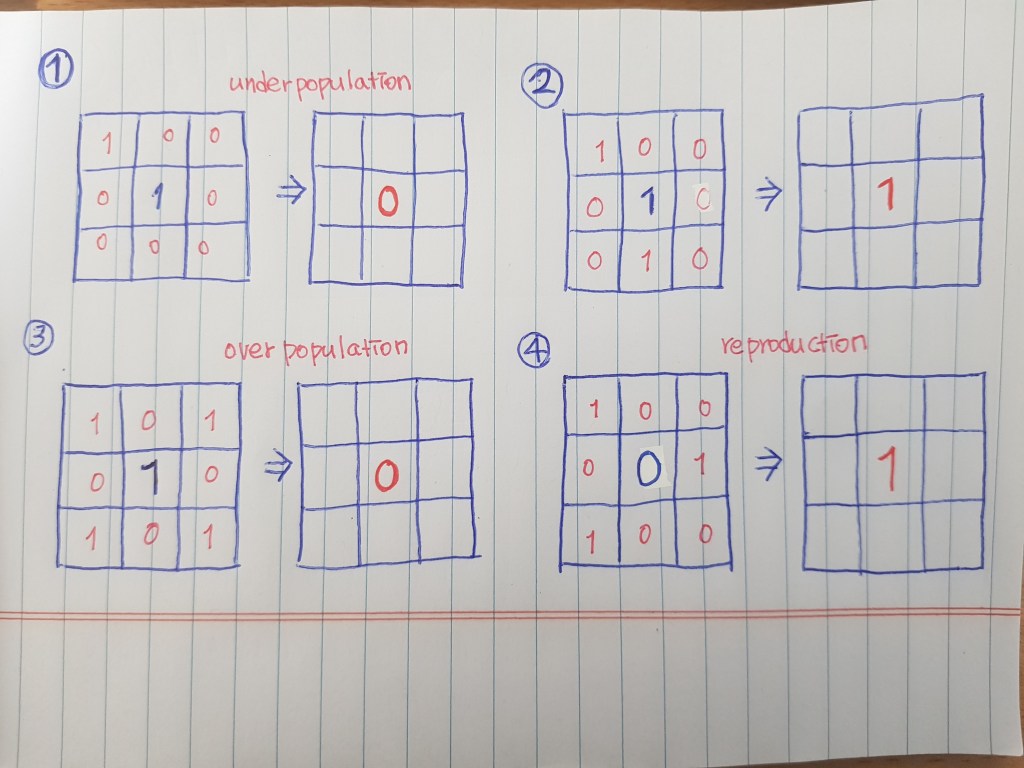 ① underpopulation
1 0 0
0 1 0 ⇒ 0
0 0 0
②
1 0 0
0 1 0 ⇒ 1
0 1 0
③ overpopulation
1 0 1
0 1 0 ⇒ 0
1 0 1
④ reproduction
1 0 0
0 0 1 ⇒ 1
1 0 0